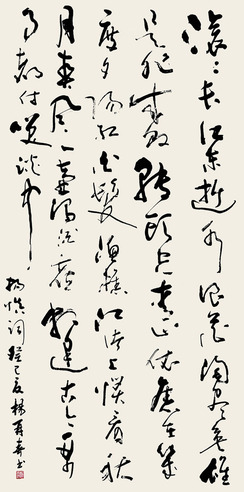 滚滚长江东逝水浪花淘尽英雄
是非成败转头空青山依旧在几
度夕阳红白髮渔樵江渚上惯看秋
月春风一壶浊酒喜相逢古今多少
事都付笑谈中
杨慎词 癸巳夏 杨再春书